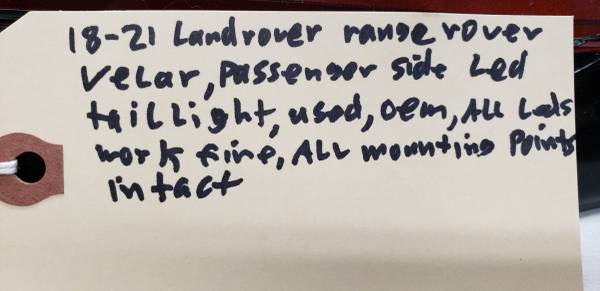 18-21 Landrover range rover
Velar, Passenger side Led
tail Light, used, oem, ALL Leds
work fine, ALL mounting Points
intact